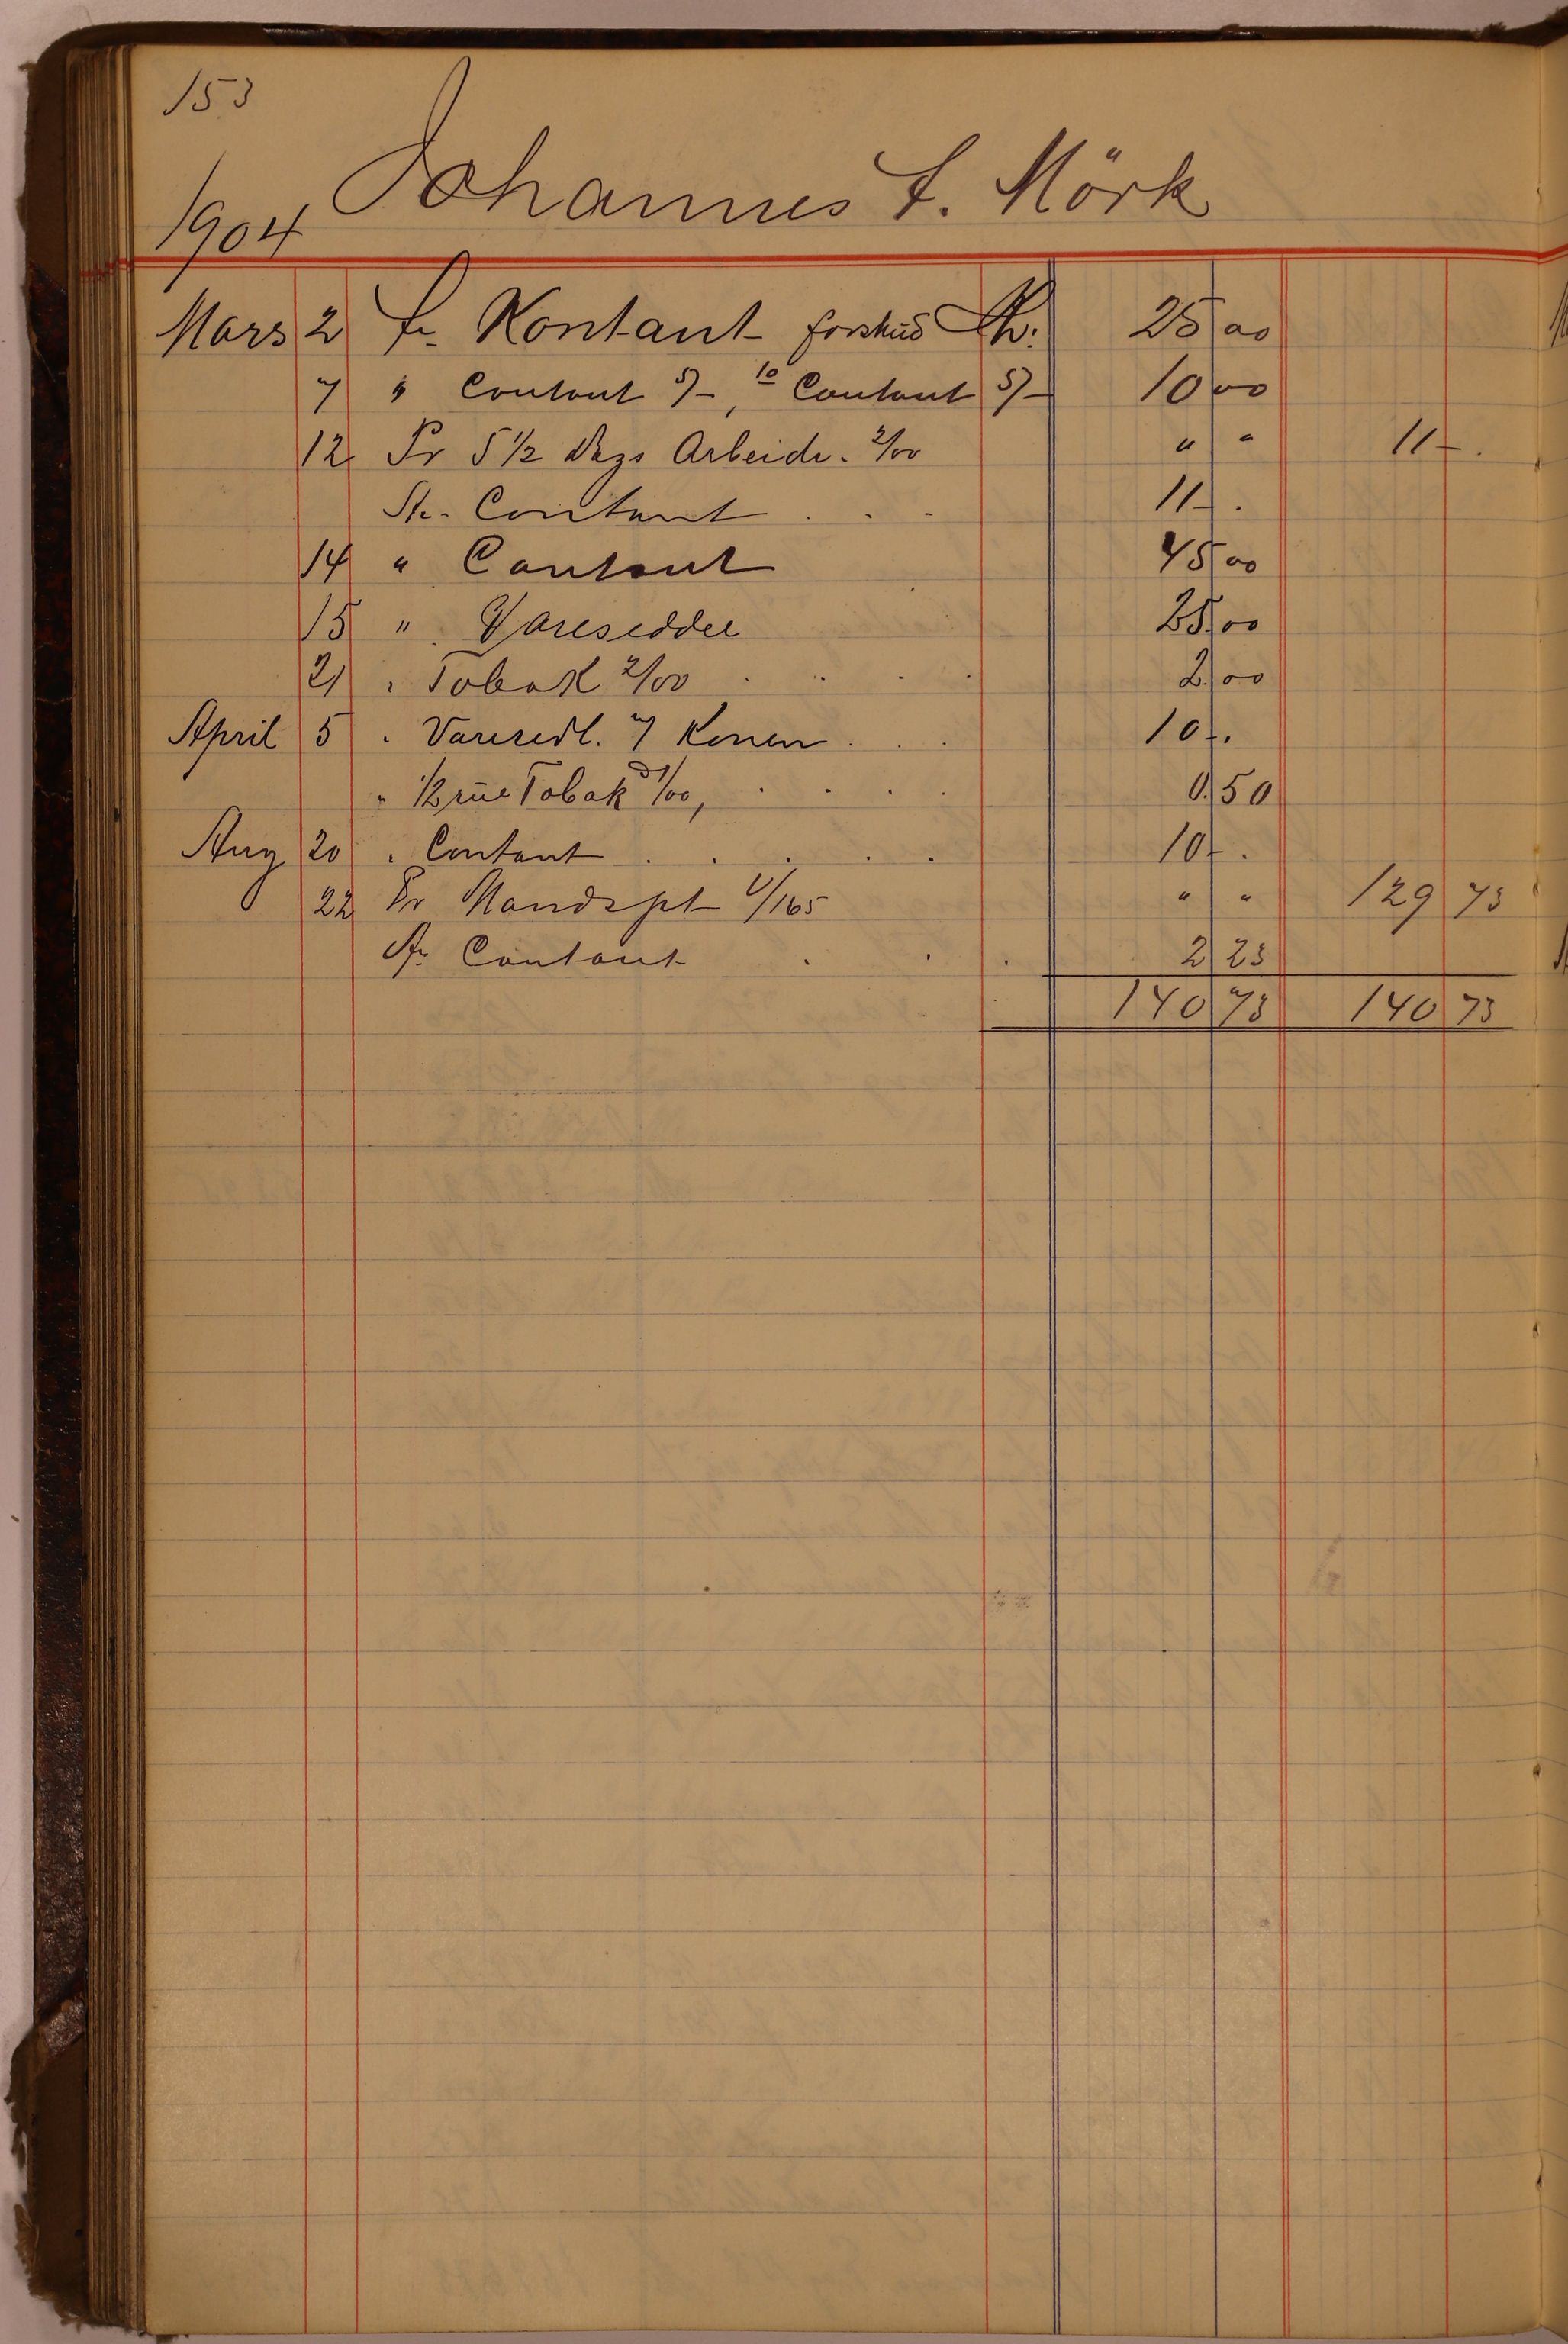 153
Johannes F. Mörk
1904
Mars 2 Kontant forskud Kr. 25 00
7 " Contant 5/-, 10 Contant 5/- 10 00
12 Pr 5 1/2 Dags Arbeide. 2/00 " " 11 -.
Contant . . . 11 -.
14 " Contant 45 00
15 " Vareseddel 25.00
21 " Tobak 2/00 . . . . 2.00
April 5 " Vareredl. Konen . . . 10 -.
" 1/2 Tobak 1/00, . . . . 0.50
Aug 20 " Contant . . . . . 10 -.
22 Pr Mandspt 1/165 " " 129 73
Contant . . . 2 23
140 73 140 73